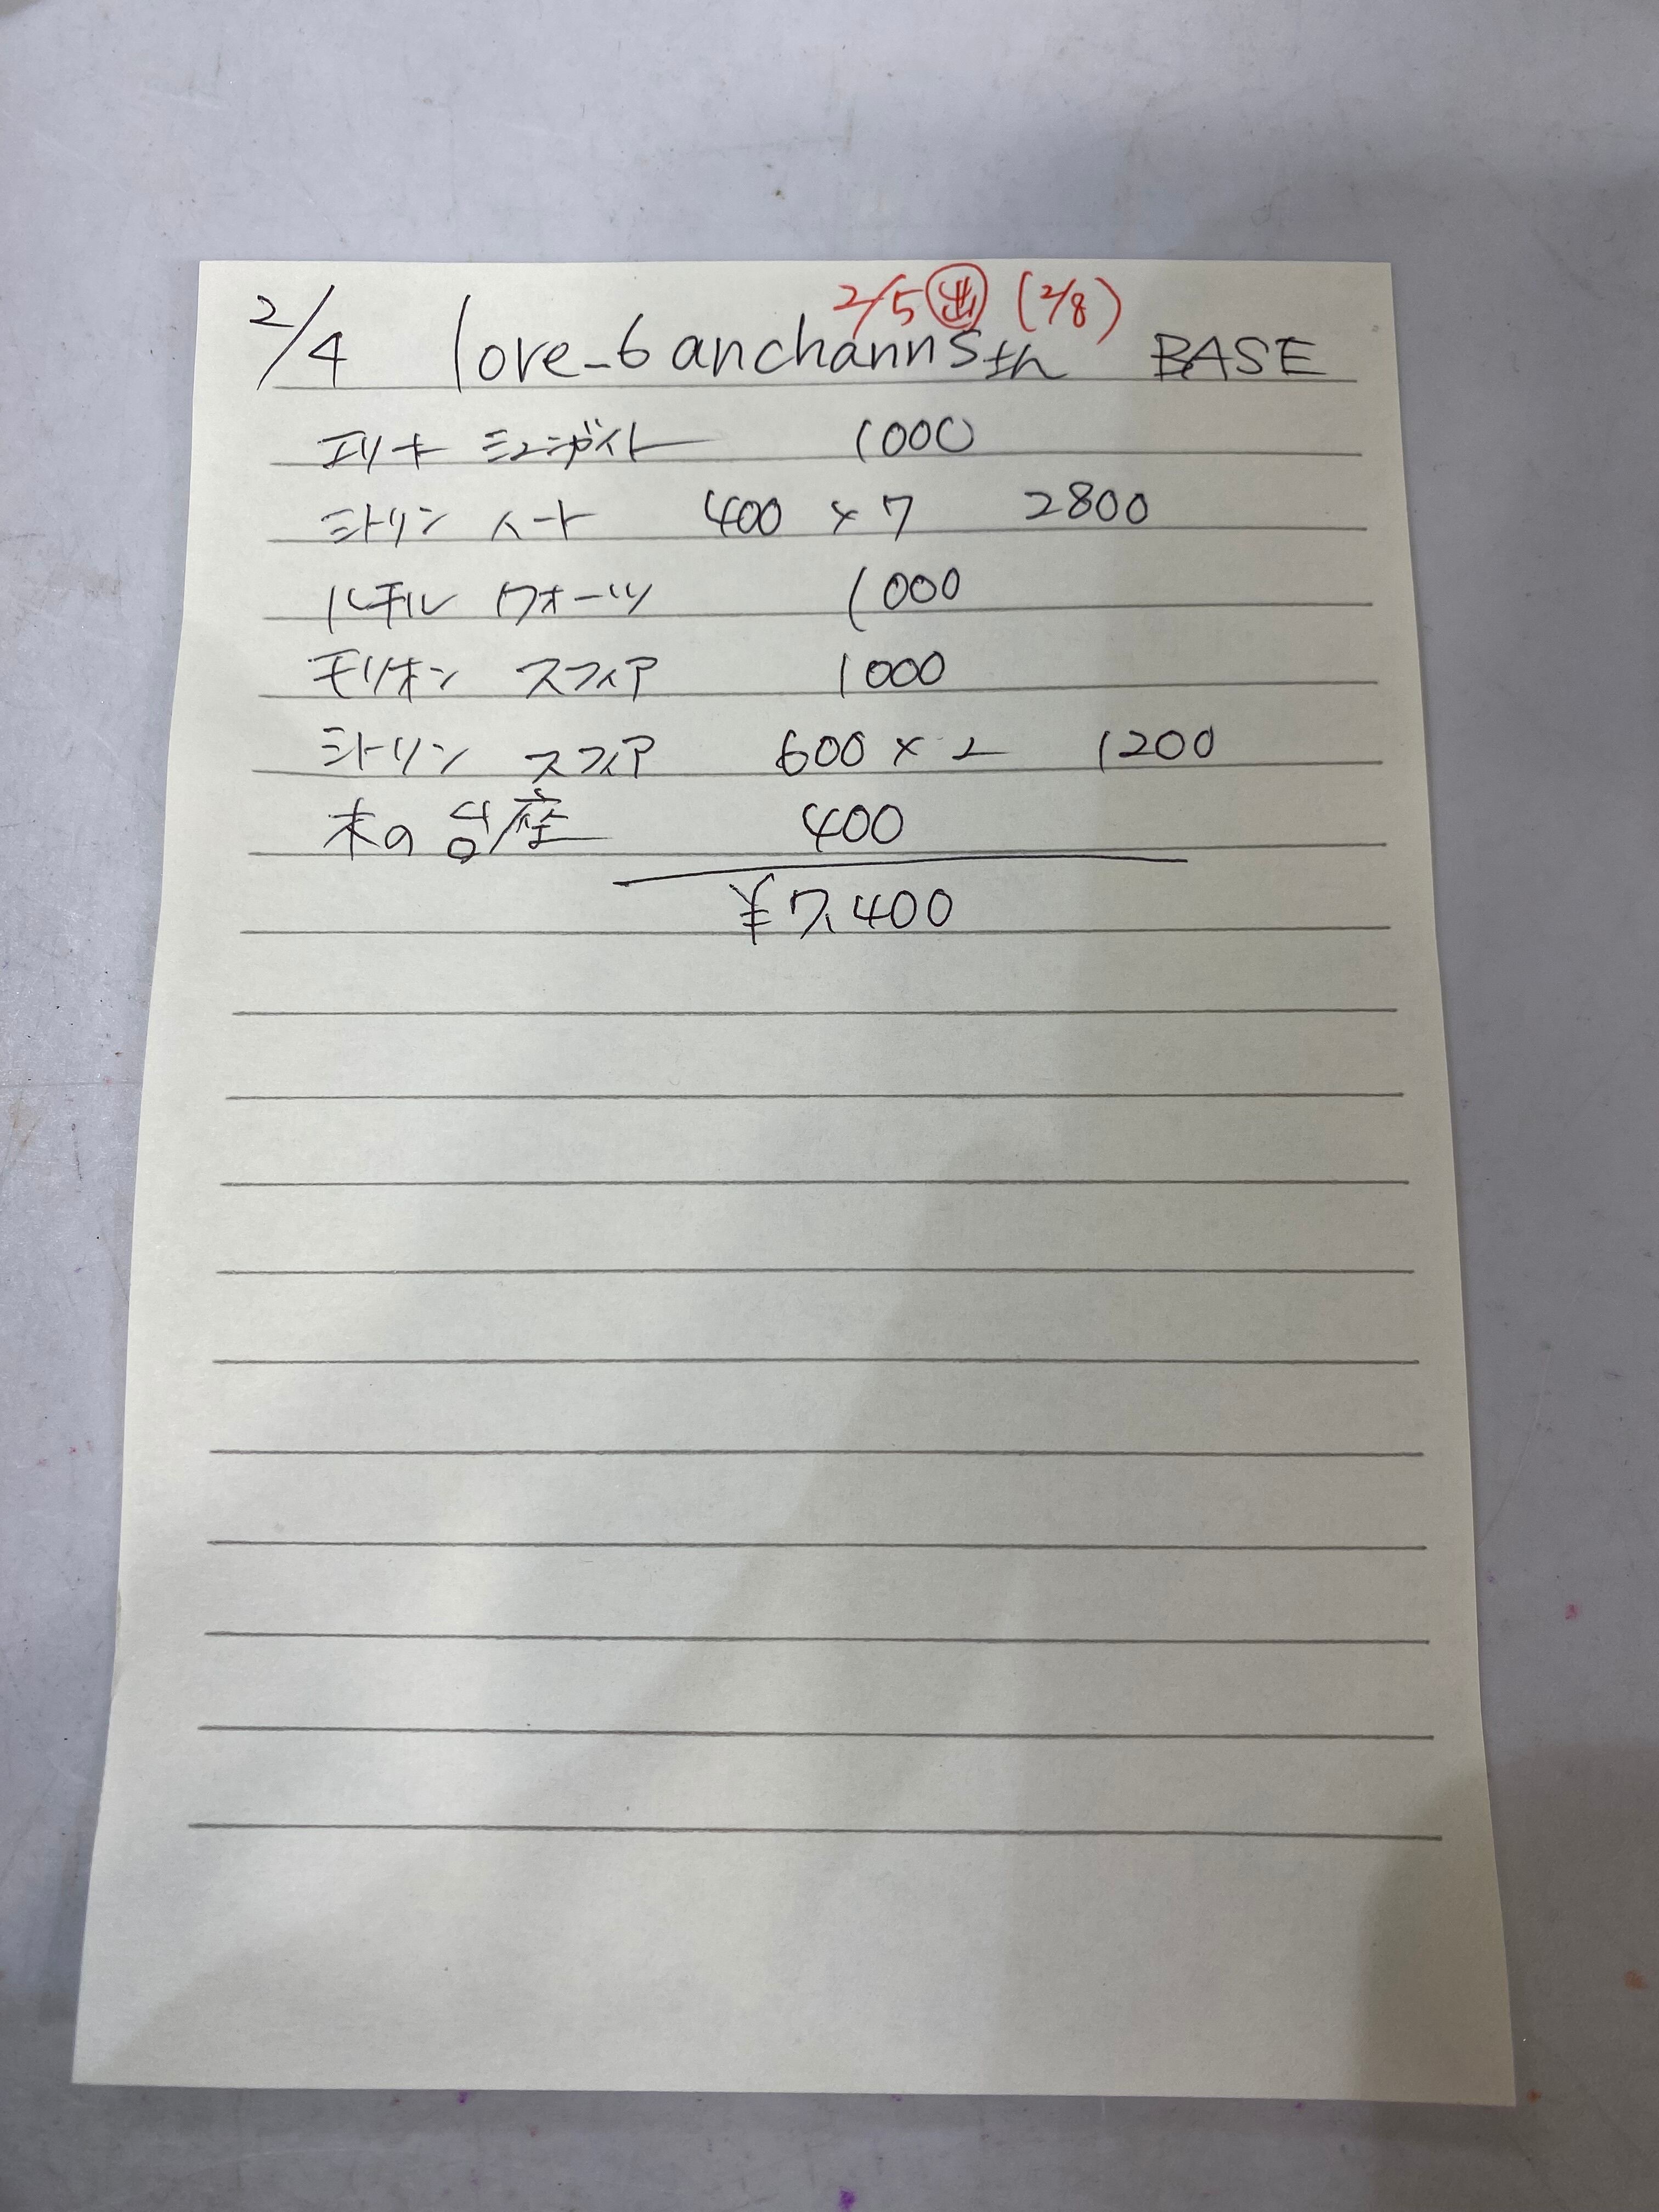 2/5 出 (2/8)
2/4 love_6anchanns さん BASE
エリート シュンガイト 1000
シトリン ハート 400 × 7 2800
ルチル クォーツ 1000
モリオン スフィア 1000
シトリン スフィア 600 × 2 1200
木の台座 400
¥7,400